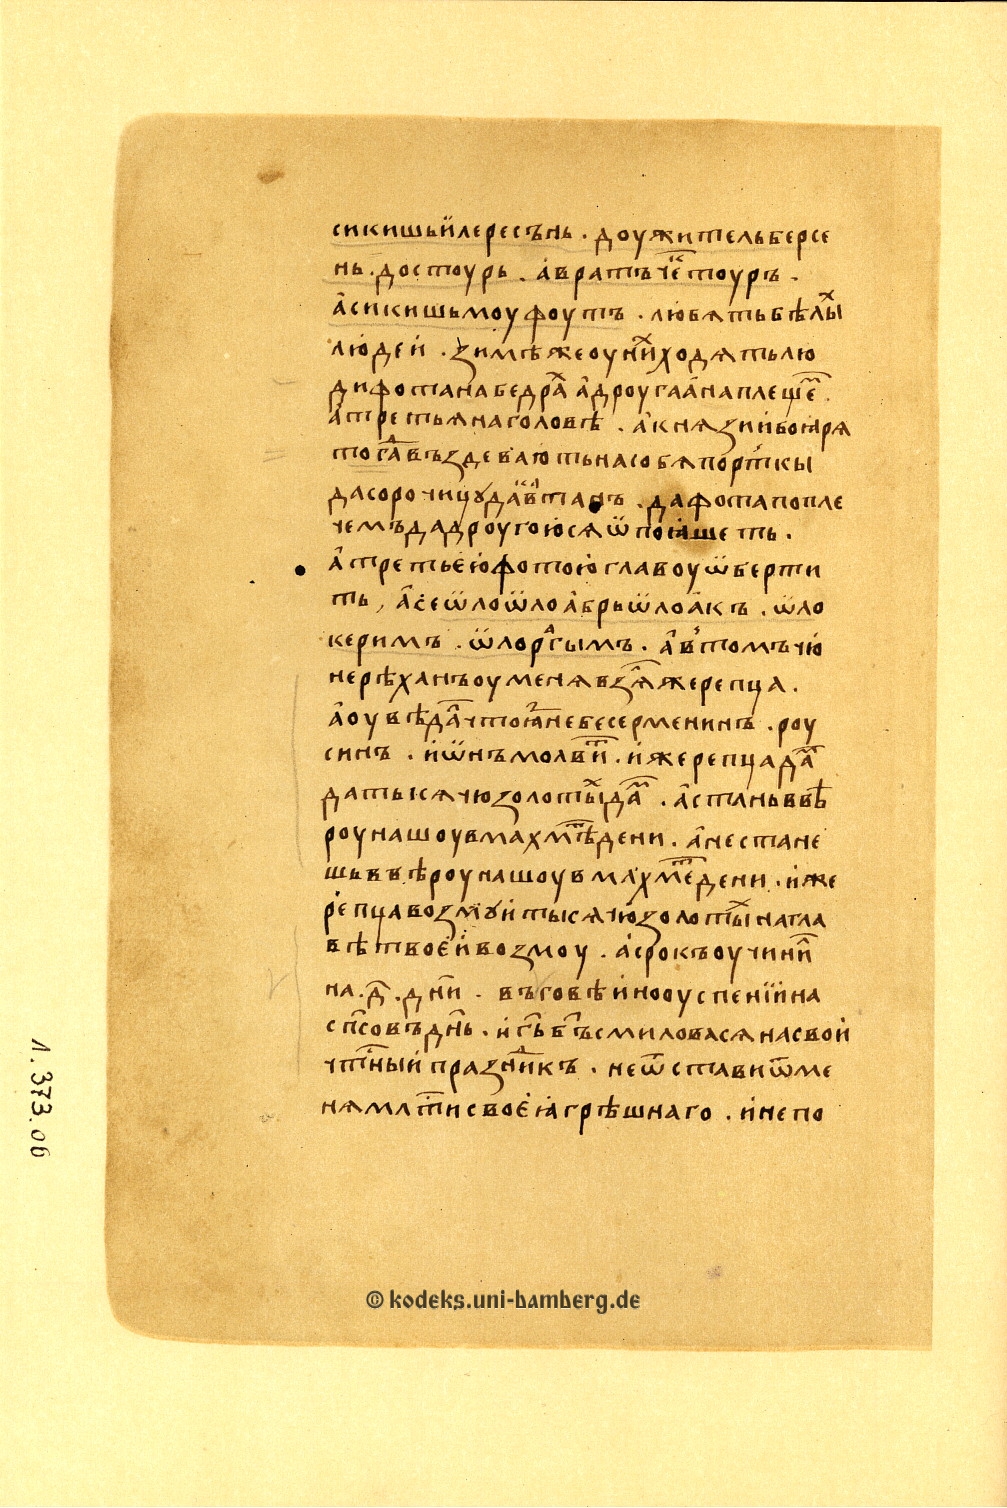 сикишьӥлересънь . доужительберсе
нь . достоурь . а҆вратъче҇тоуръ .
а҆сикишьмоуфоутъ . любятьбѣлы̾х
людеи . зимѣжеоуни̾хходятьлю
дифотанабедрѣ а҆дроугаа҆наплещѣ .
а҆третьянаголовѣ . а҆князиибоꙗ҆ря
тог҃давъздеваютьнасобяпорткы
дасорочицꙋдакавтанъ . дафотапопле
чемъдадроугоюсяѿпоꙗ҆шеть .
а҆третьею҆фотою҆главоуѿберти
ть , а҆сеѿлоѿлоа҆брьѿлоа҆къ . ѿло
керимъ . ѿлорагымъ . а҆втомъчю
нерѣханъоуменявзялжерепца .
а҆оувѣдалчтоꙗ҆знебесерменинъ . роу
синъ . и҆ѿнъмолвит . и҆жерепцадам
датысячюзолоты̾хдам . а҆станьввѣ
роунашоувмахмѣтдени . а҆нестане
шьввѣроунашоувмахмѣтдени . и҆же
репцавозмꙋи҆тысячю҆золоты̾хнагла
вѣтвоеи҆возмоу . а҆срокъоучинил
на . д҃ . дн҃и . въговѣи҆нооуспенїи҆на
сп҃совъдн҃ь . и҆г҃ьб҃ъсмиловасянасвои
чт҃ныи҆праздникъ . неѿставиѿме
нямлт҃исвоеꙗ҆грѣшнаго . и҆непо
л. 373. об
© kodeks.uni-bamberg.de